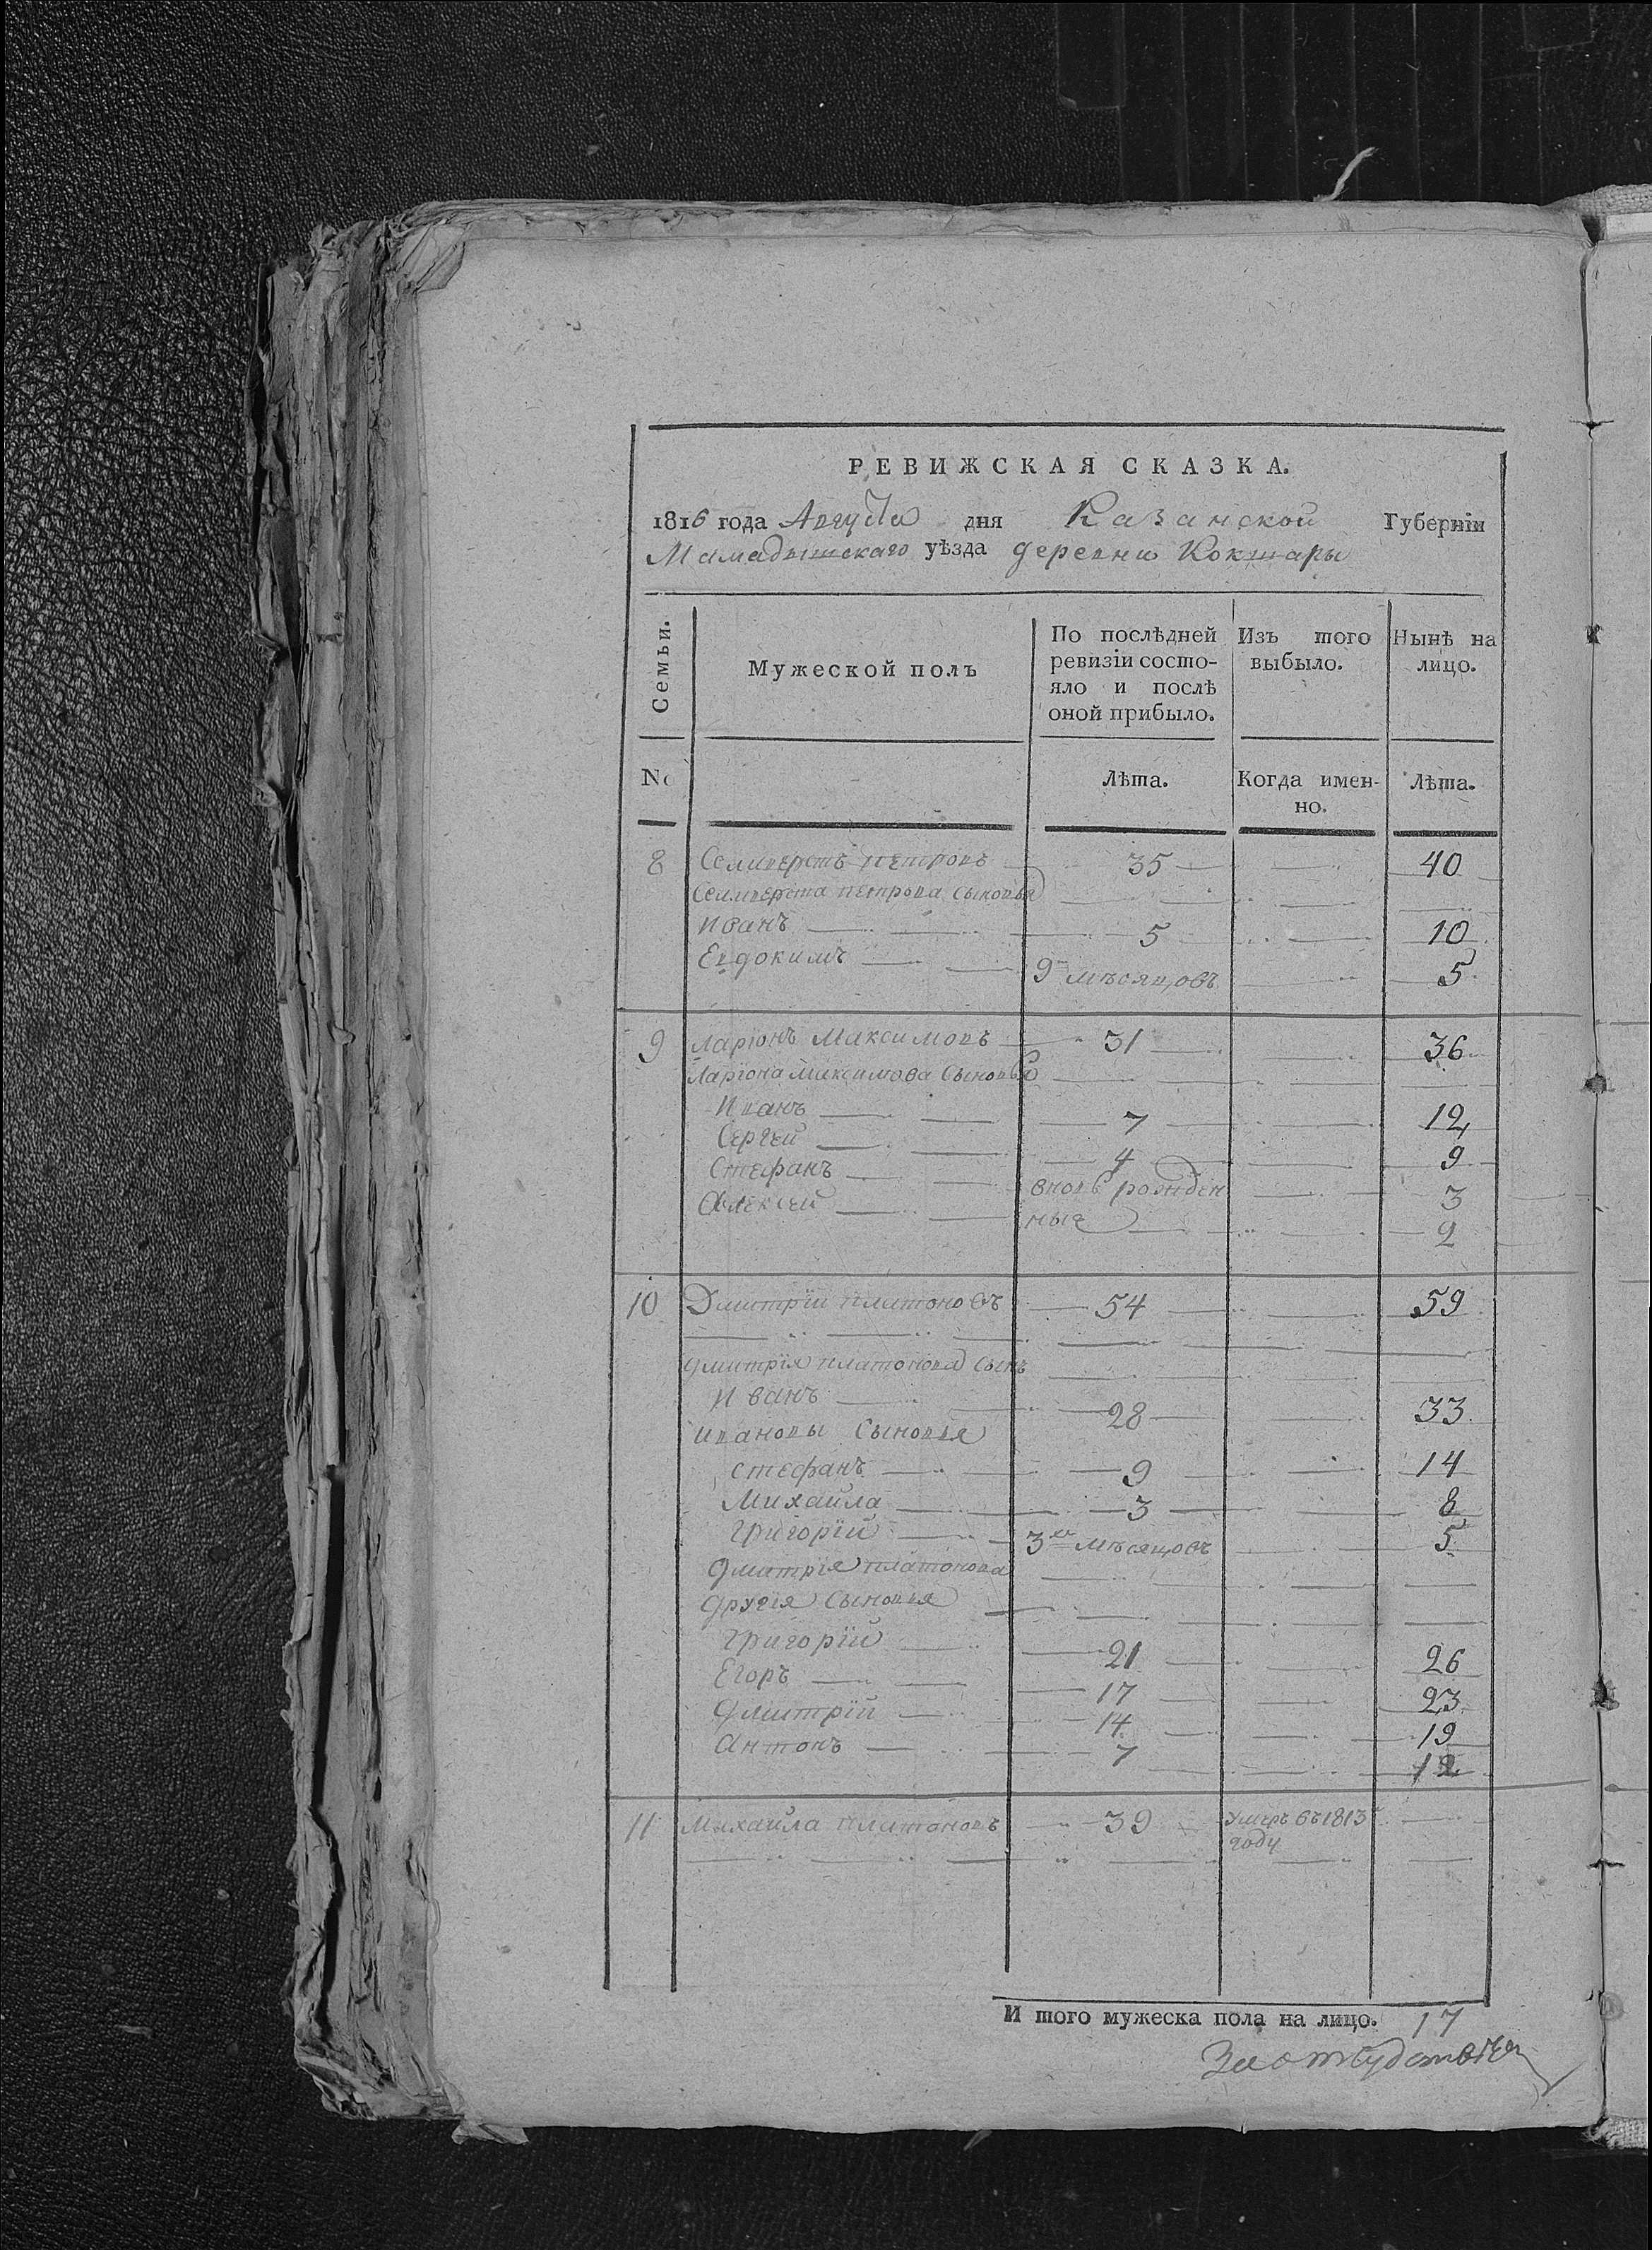 РЕВИЖСКАЯ СКАЗКА.
1816 года Августа дня Казанской Губернїи
Мамадышскаго уѣзда деревни Кокшары
Семьи.
Мужеской полъ
По послѣдней ревизїи состо-
яло и послѣ
оной прибыло.
Изъ того
выбыло.
Нынѣ на
лицо.
No
Лѣта.
Когда имен-
но.
Лѣта.
8 Селиверстъ петровъ 35 40
Селиверста петрова сыновья
Иванъ 5 10
Евдокимъ 9 мѣсяцовъ 5
9 Ларїонъ Максимовъ 31 36
Ларїона Максимова сыновья
Иванъ 7 12
Сергей 4 9
Стефанъ вновь рожден 3
Алексей ныя 2
10 Дмитрїй платоновъ 54 59
Дмитрїя платонова сынъ
Иванъ 28 33
Ивановы сыновья
Стефанъ 9 14
Михайла 3 8
Григорїй 3хъ мѣсяцовъ 5
Дмитрїя платонова
другїя сыновья
Григорїй 21 26
Егоръ 17 23
Дмитрїй 14 19
Антонъ 7 12
11 Михайла платоновъ 39 умеръ въ 1813
году
И того мужеска пола на лицо. 17